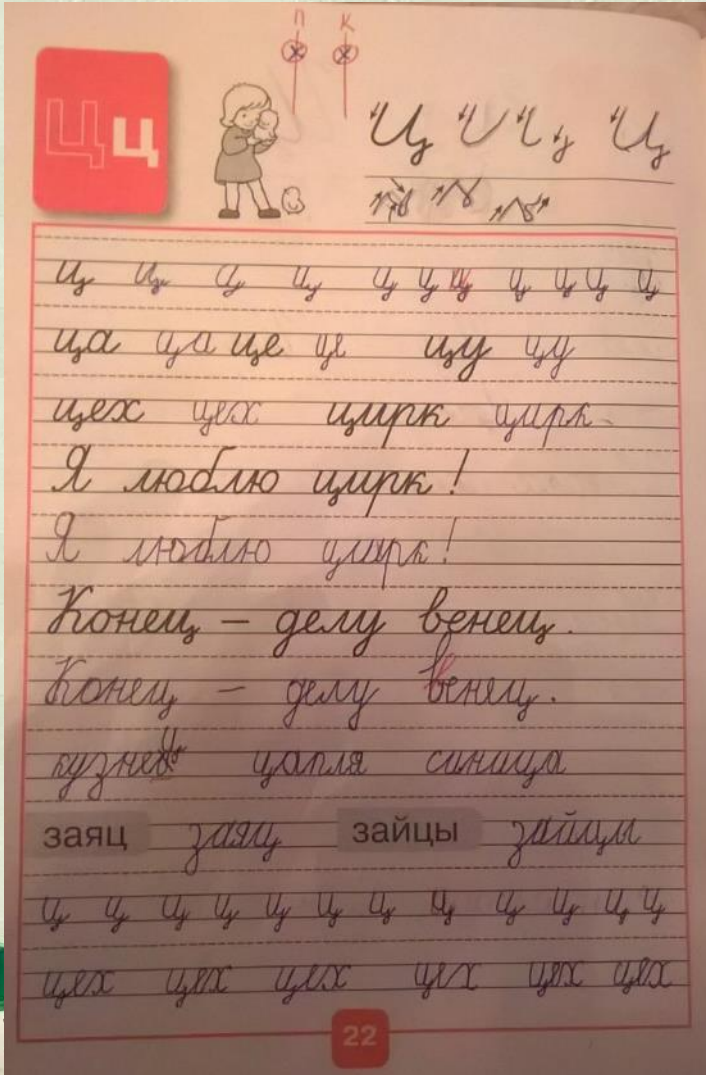 П К
Ц ц
Ц Ц
ц ц ц ц ц ц ц ц ц ц ц
ца ца це це цу цу
цех цех цирк цирк
Я люблю цирк!
Я люблю цирк!
Конец – делу венец.
Конец – делу венец.
кузнец цапля синица
заяц заяц зайцы зайцы
ц ц ц ц ц ц ц ц ц ц ц ц
цех цех цех цех цех цех
22